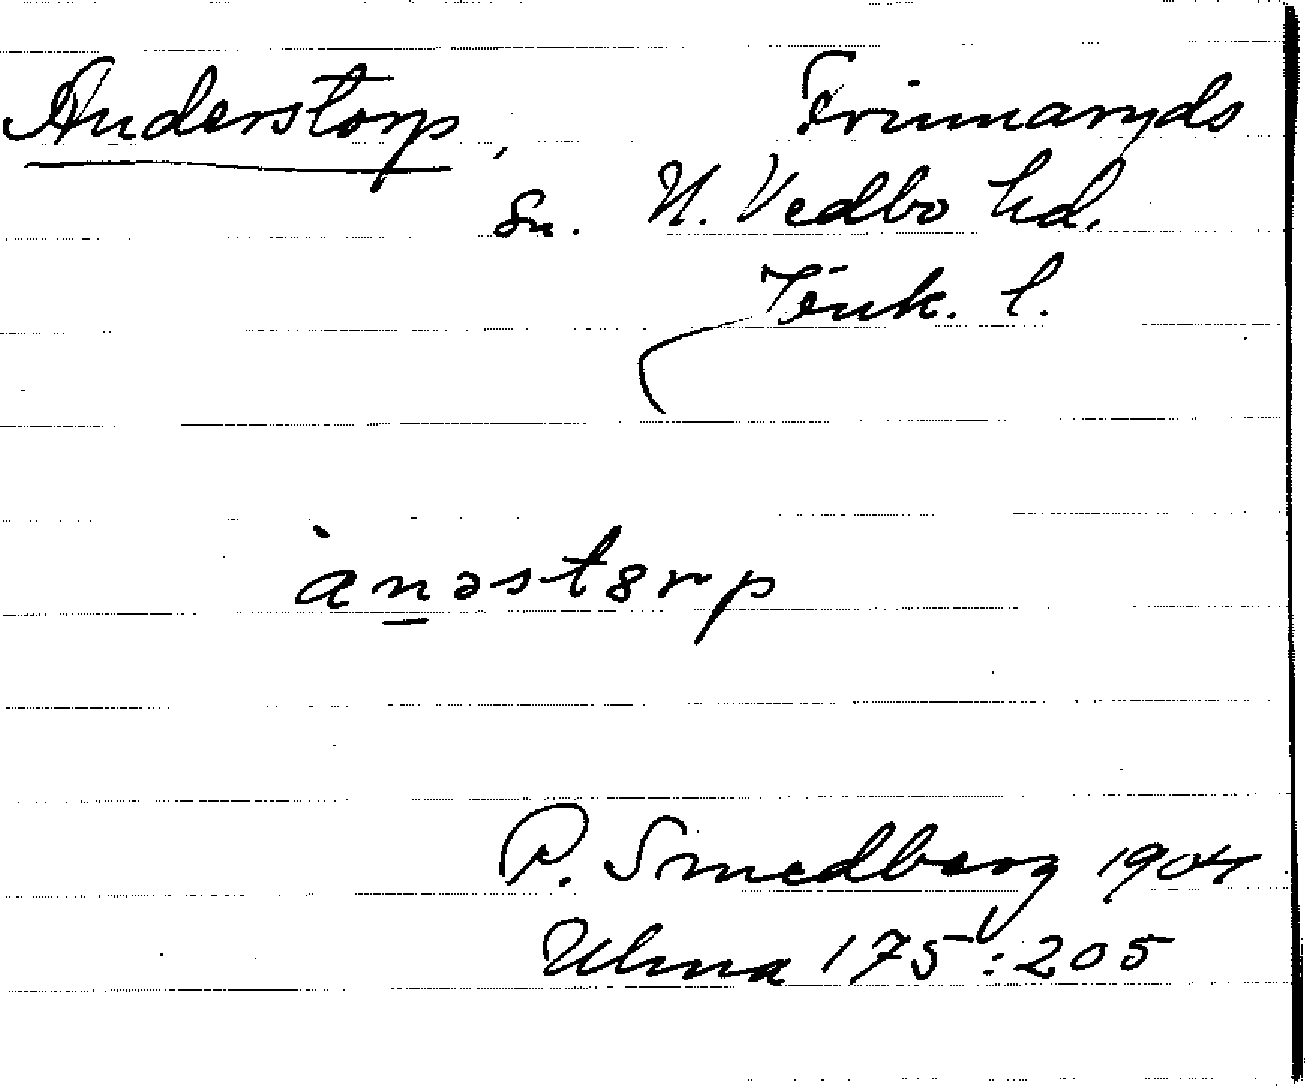 Anderstorp, Frinnaryds
Sn. N. Vedbo hd.
Jönk. l.
ànəst8rp
P. Smedberg 1904
Ulma 175:205